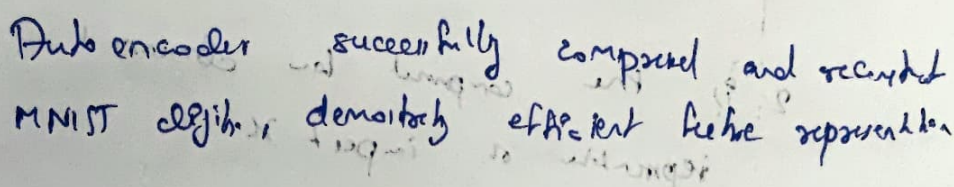 Autoencoder successfully compressed and reconstructed
MNIST digits, demonstrating efficient feature representation